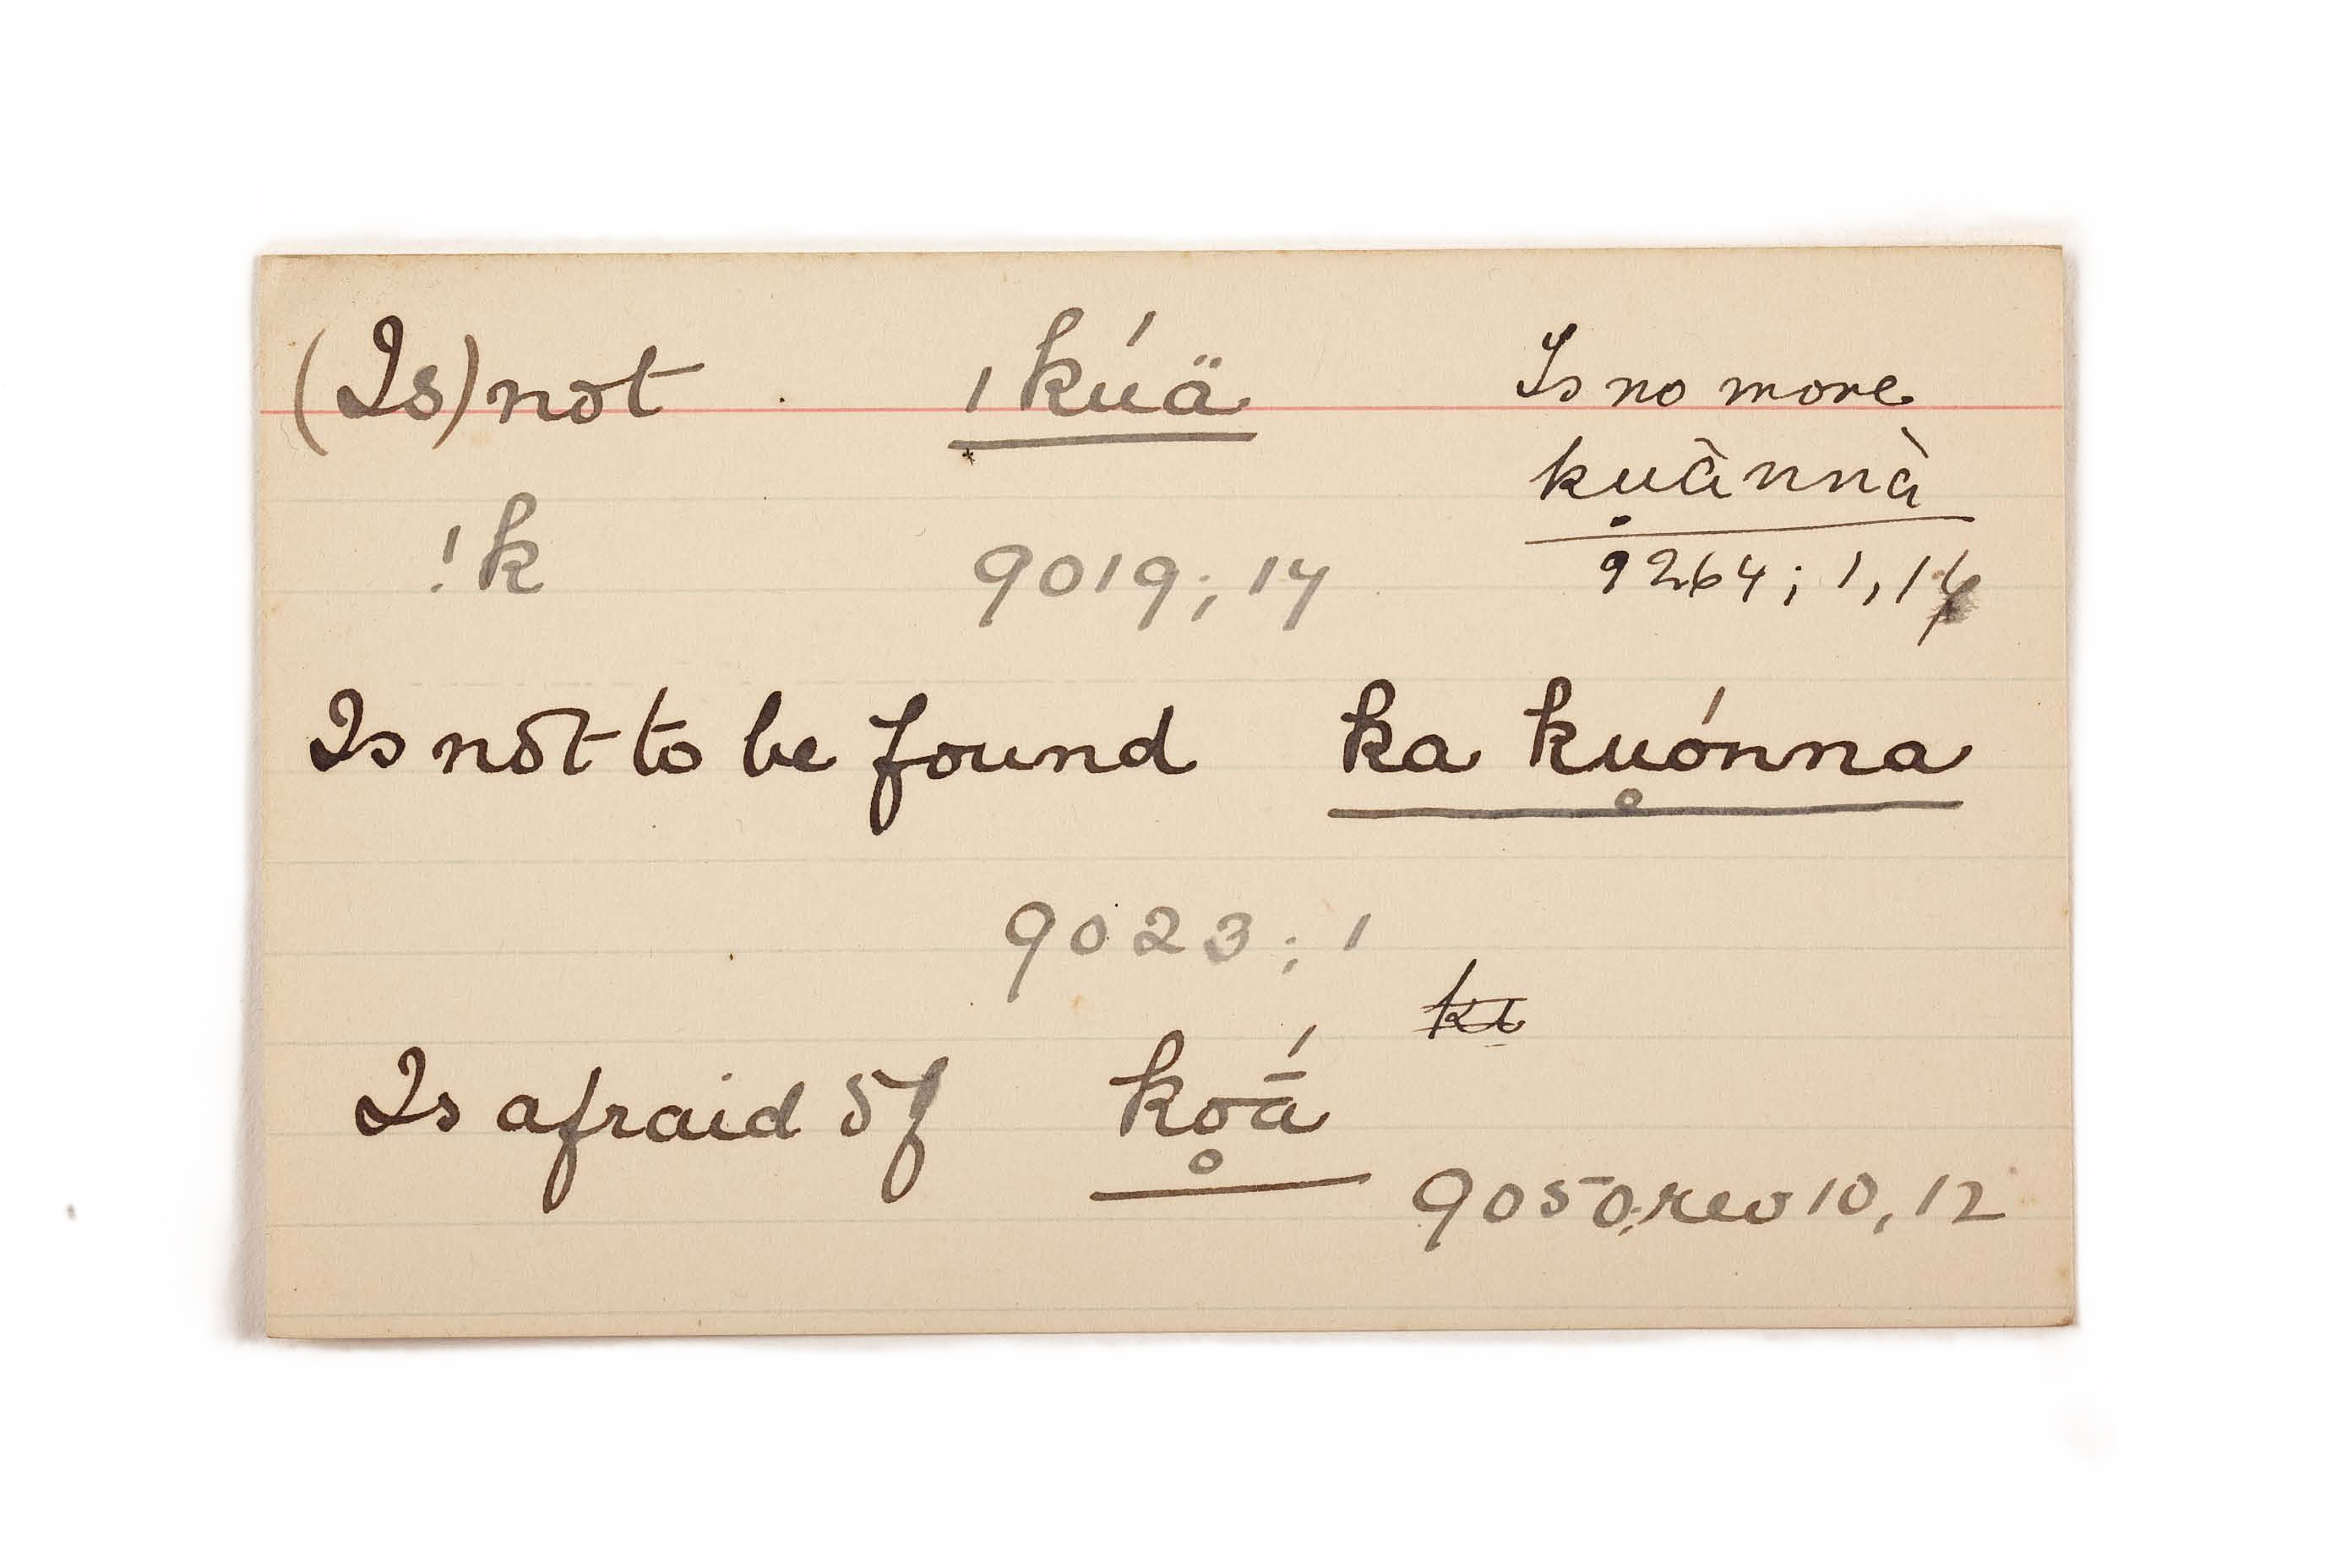 (Is) not ı kúä Is no more
kụànnà
!k 9019; 14 9264; 1, 14
Is not to be found ka ku̥ónna
9023; 1
Is afraid of ko̥ā́
9050, rev 10, 12